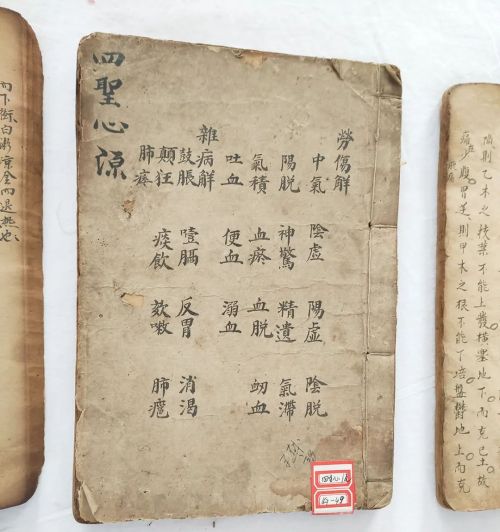 勞傷解
中氣 陰虛 陽虛 陰脫
陽脫 神驚 精遺 氣滯
氣積 血瘀 血脫 衂血
吐血 便血 溺血
雜病解
鼓脹 噎膈 反胃 消渴
顛狂 痰飲 欬嗽 肺癰
肺
四聖心源
49
陷則乙木之枝葉不能上發橫塞地下而克己土故
痛少腹胃逆則甲木之根不能下培盤鬱地上而克
而下 白粥 全而退熱也